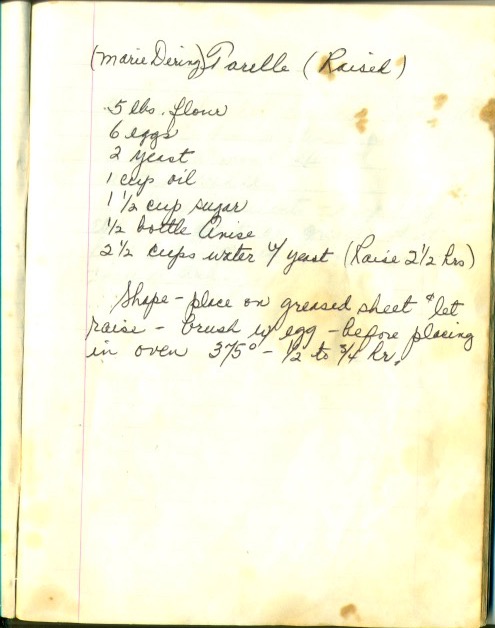 (Marie Dering) Tarelle (Raised)
5 lbs. flour
6 eggs
2 yeast
1 cup oil
1 1/2 cup sugar
1/2 bottle Anise
2 1/2 cups water w/ yeast (Raise 2 1/2 hrs)
Shape - place on greased sheet & let
raise - brush w/ egg - before placing
in oven 375° - 1/2 to 3/4 hr.